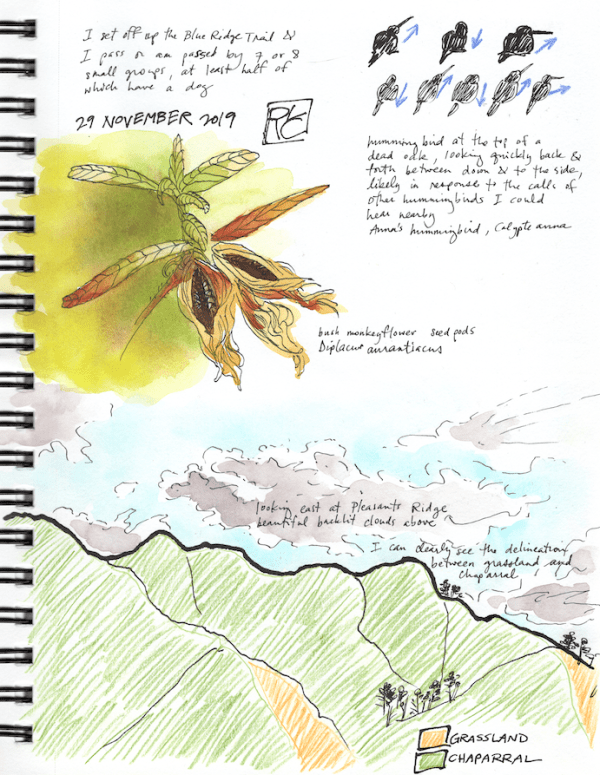 I set off up the Blue Ridge Trail &
I pass or am passed by 7 or 8
small groups, at least half of
which have a dog
29 NOVEMBER 2019
humming bird at the top of a
dead oak, looking quickly back &
forth between down & to the side,
likely in response to the calls of
other hummingbirds I could
hear nearby
Anna's hummingbird, Calypte anna
bush monkeyflower seed pods
Diplacus aurantiacus
looking east at Pleasants Ridge
beautiful backlit clouds above
I can clearly see the delineation
between grassland and
chaparral
GRASSLAND
CHAPARRAL